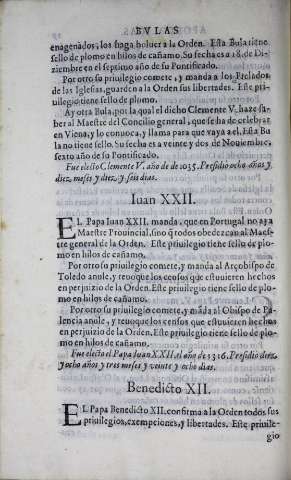 BVLAS
enagenados, los haga boluer a la Orden. Esta Bula tiene
sello de plomo en hilos de cañamo. Su fecha es a 18. de Di-
ziembre en el septimo año de su Pontificado.
Por otro su priuilegio comete, y manda a los Prelados
de las Iglesias, guarden a la Orden sus libertades. Este pri-
uilegio tiene sello de plomo.
Ay otra Bula, por la qual el dicho Clemente V. haze sa-
ber al Maestre del Concilio general, que se ha de celebrar
en Viena, y lo conuoca, y llama para que vaya a el. Esta Bu
la no tiene sello. Su fecha es a veinte y dos de Nouiembre,
sexto año de su Pontificado.
Fue electo Clemente V. año de de 1035. Presidio ocho años, y
diez meses y diez, y seis dias.
Iuan XXII.
EL Papa Iuan XXII. manda, que en Portugal no aya
Maestre Prouincial, sino q̃ todos obedezcan al Maes-
tre general de la Orden. Este priuilegio tiene sello de plo-
mo en hilos de cañamo.
Por otro su priuilegio comete, y manda al Arçobispo de
Toledo anule, y reuoque los censos que estuuieren hechos
en perjuizio de la Orden. Este priuilegio tiene sello de plo-
mo en hilos de cañamo.
Por otro su priuilegio comete, y mãda al Obispo de Pa-
lencia anule, y reuoque los censos que estuuieren hechos
en perjuizio de la Orden. Este priuilegio tiene sello de plo-
mo en hilos de cañamo.
Fue electo el Papa Iuan XXII. el año de 1316. Presidio diez
y ocho años y tres meses y veinte y ocho dias.
Benedicto XII.
EL Papa Benedicto XII. confirma a la Orden todos sus
priuilegios, exempciones, y libertades. Este priuile-
gio